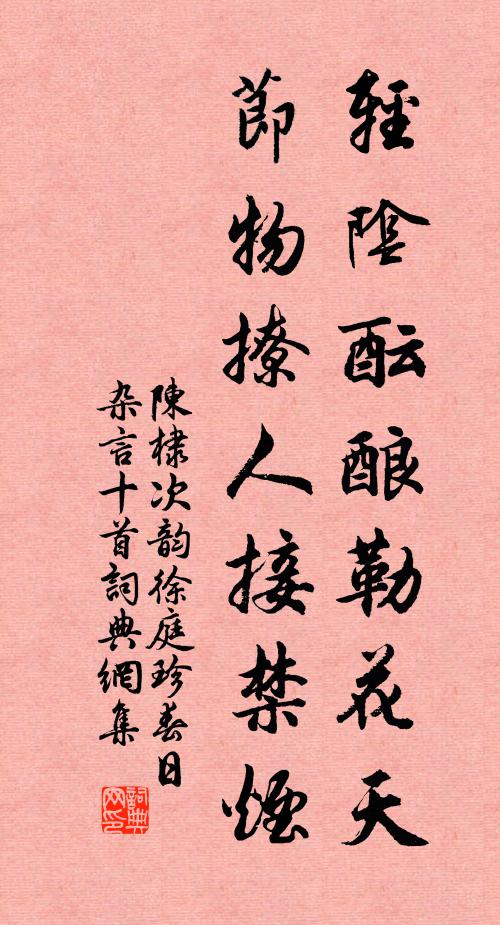 輕陰酝酿勒花天
節物撩人接禁煙
陳棣次韵徐庭珍春日
杂言十首詞典網集
詞典網印